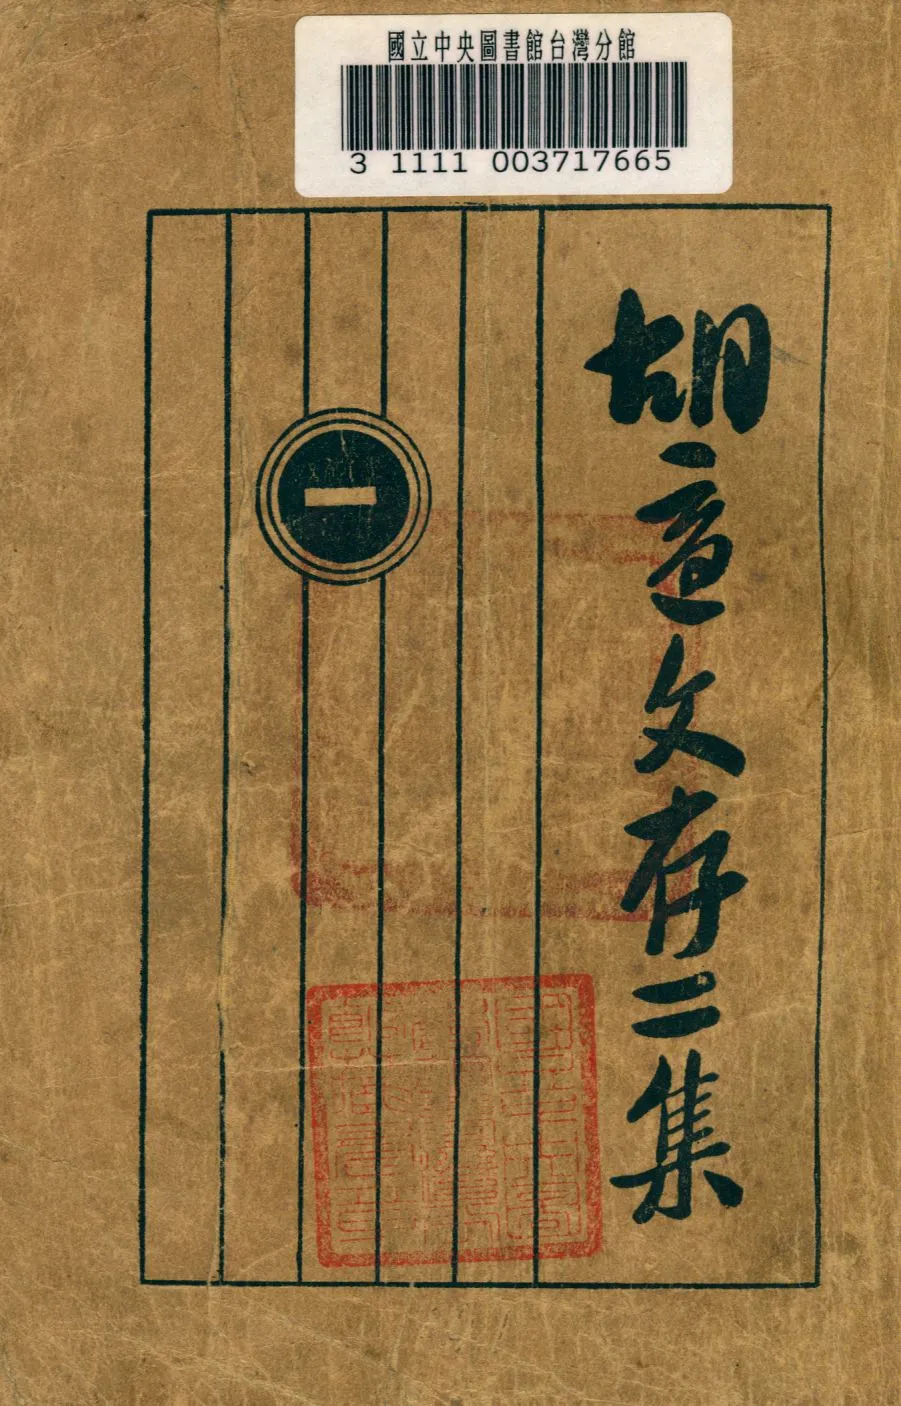 國立中央圖書館台灣分館
3 1111 003717665
胡適文存二集
一